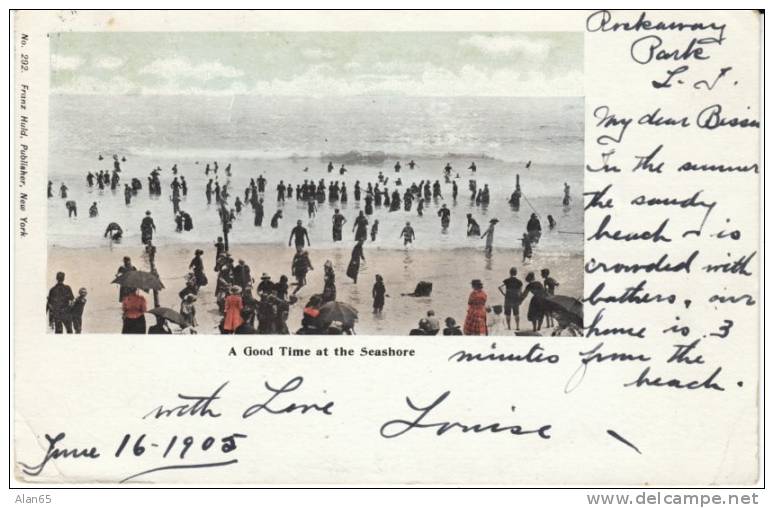 No. 292. Franz Huld, Publisher, New York
Rockaway
Park
L. I.
My dear
In the summer
the sandy
beach is
crowded with
bathers, our
home is 3
minutes from the
beach.
A Good Time at the Seashore
with Love Louise
June 16-1905
Alan65
http://www.delcampe.net